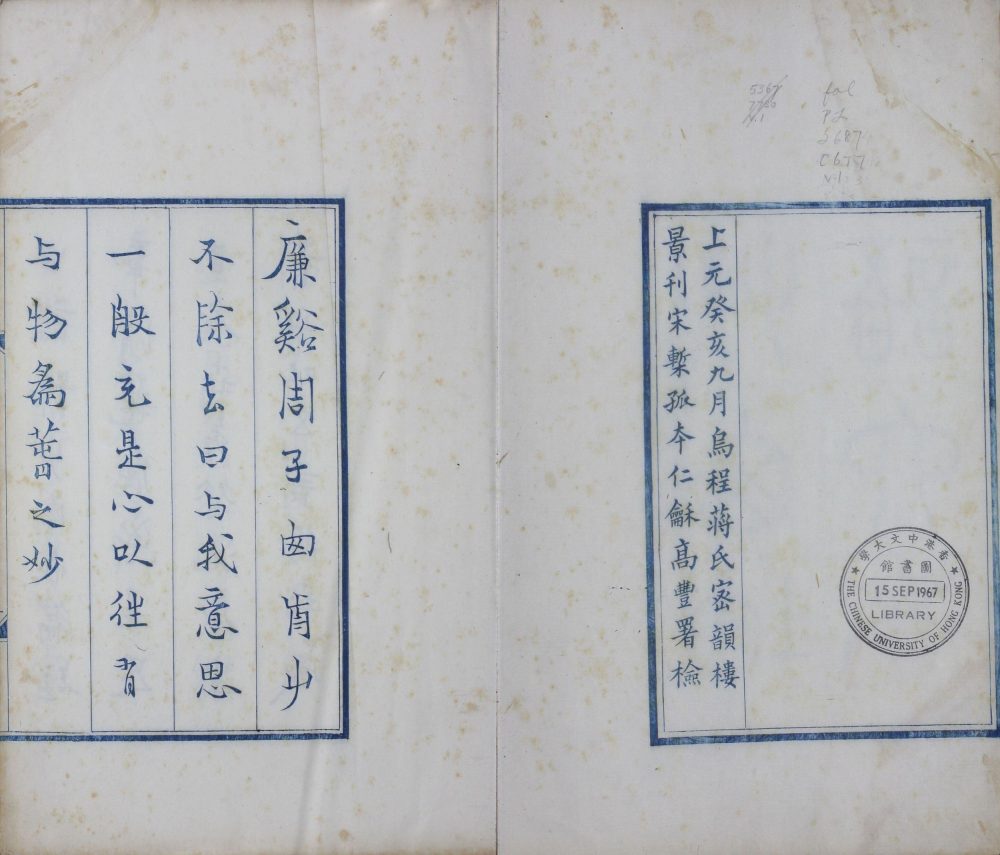 上元癸亥九月烏程蔣氏宻韻樓
景刊宋槧孤本仁龢高豐署檢
fol
PL
v.1
香港中文大學
圖書館
15 SEP 1967
LIBRARY
THE CHINESE UNIVERSITY OF HONG KONG
廉谿周子囪歬艸
不除去曰与我意思
一般充是心以徃皆
与物為萅之妙